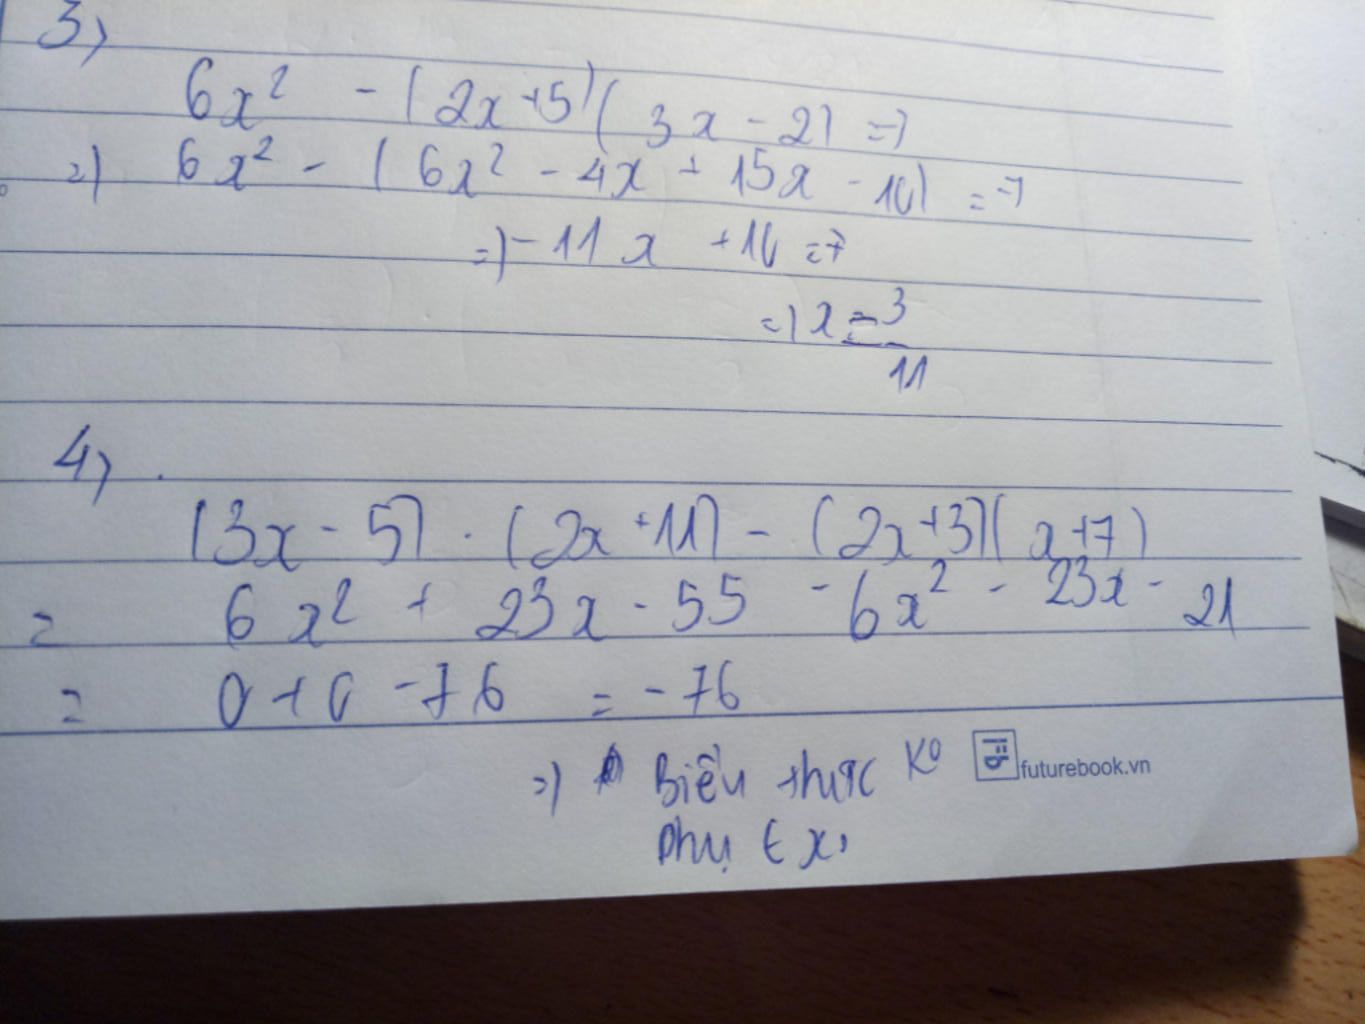 3)
6x² - (2x+5)(3x-2) = 7
=) 6x² - (6x² - 4x + 15x - 10) = 7
=) -11x + 10 = 7
=) x = 3/11
4)
(3x - 5) . (2x + 11) - (2x+3)(x+7)
= 6x² + 23x - 55 - 6x² - 23x - 21
= 0 + 0 - 76 = - 76
=) Biểu thức Ko
futurebook.vn
phụ t x,